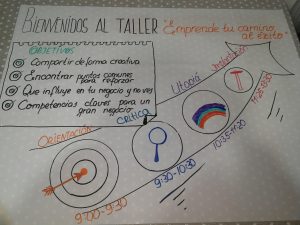 BIENVENIDOS AL TALLER
"Emprende tu camino
al éxito"
OBJETIVOS
Compartir de forma creativa
Encontrar puntos comunes
para reforzar
Que influye en tu negocio y no ves
Competencias claves para un
gran negocio
ORIENTACIÓN
9:00-9:30
CRÍTICA
9:30-10:30
UTOPÍA
10:35-11:20
11:25-12:30